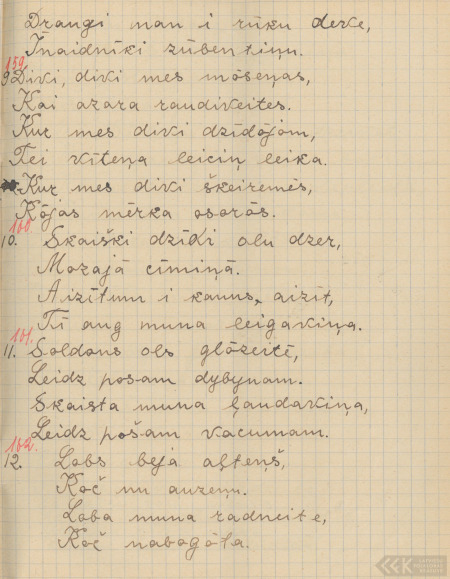 Draugi man i rūku deve,
Īnaidnīki zūbentiņu.
159.
9 Divi, divi mes mōseņas,
Kai azara raudiveites.
Kur mes divi dzīdōjom,
Tei vīteņa leiciņ leika.
Kur mes divi škeiremēs,
Kōjas mērka osorōs.
160.
10. Skaiški dzīdi olu dzer,
Mozajā cīmiņā.
Aizītum i kauns, aizīt,
Tī aug muna leigaviņa.
161.
11. Soldons ols glōzeitē,
Leidz pošam dybynam.
Skaista muna ļaudaviņa,
Leidz pošam vacumam.
162.
12. Lobs beja aļteņš,
Koč nu auzeņu.
Loba muna radneite,
Koč nabogōta.